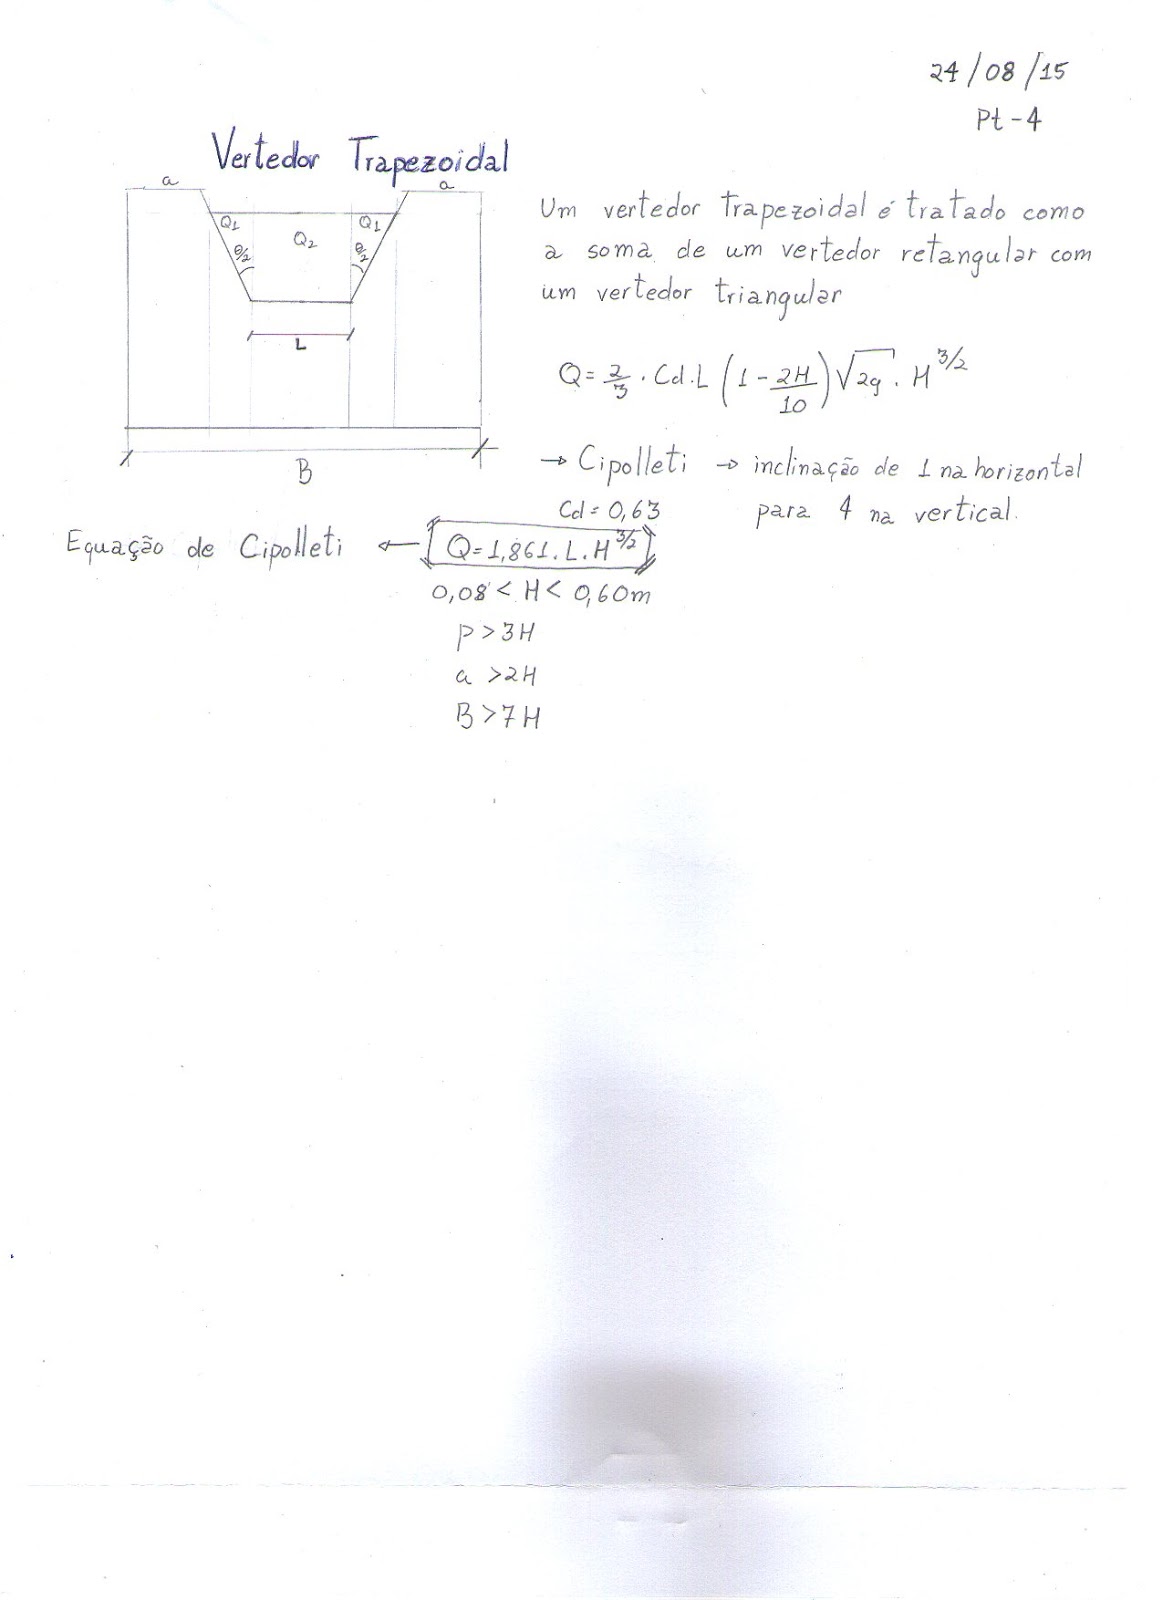 24/08/15
Pt-4
Vertedor Trapezoidal
a
a
Q1
Q2
Q1
θ/2
θ/2
L
B
Um vertedor trapezoidal é tratado como
a soma de um vertedor retangular com
um vertedor triangular
Q = 2/3 . Cd.L (1 - 2H/10) √2g . H^3/2
→ Cipolleti → inclinação de 1 na horizontal
Cd = 0,63 para 4 na vertical.
Equação de Cipolleti ← [Q=1,861.L.H^3/2]
0,08 < H < 0,60m
p > 3H
a > 2H
B > 7H